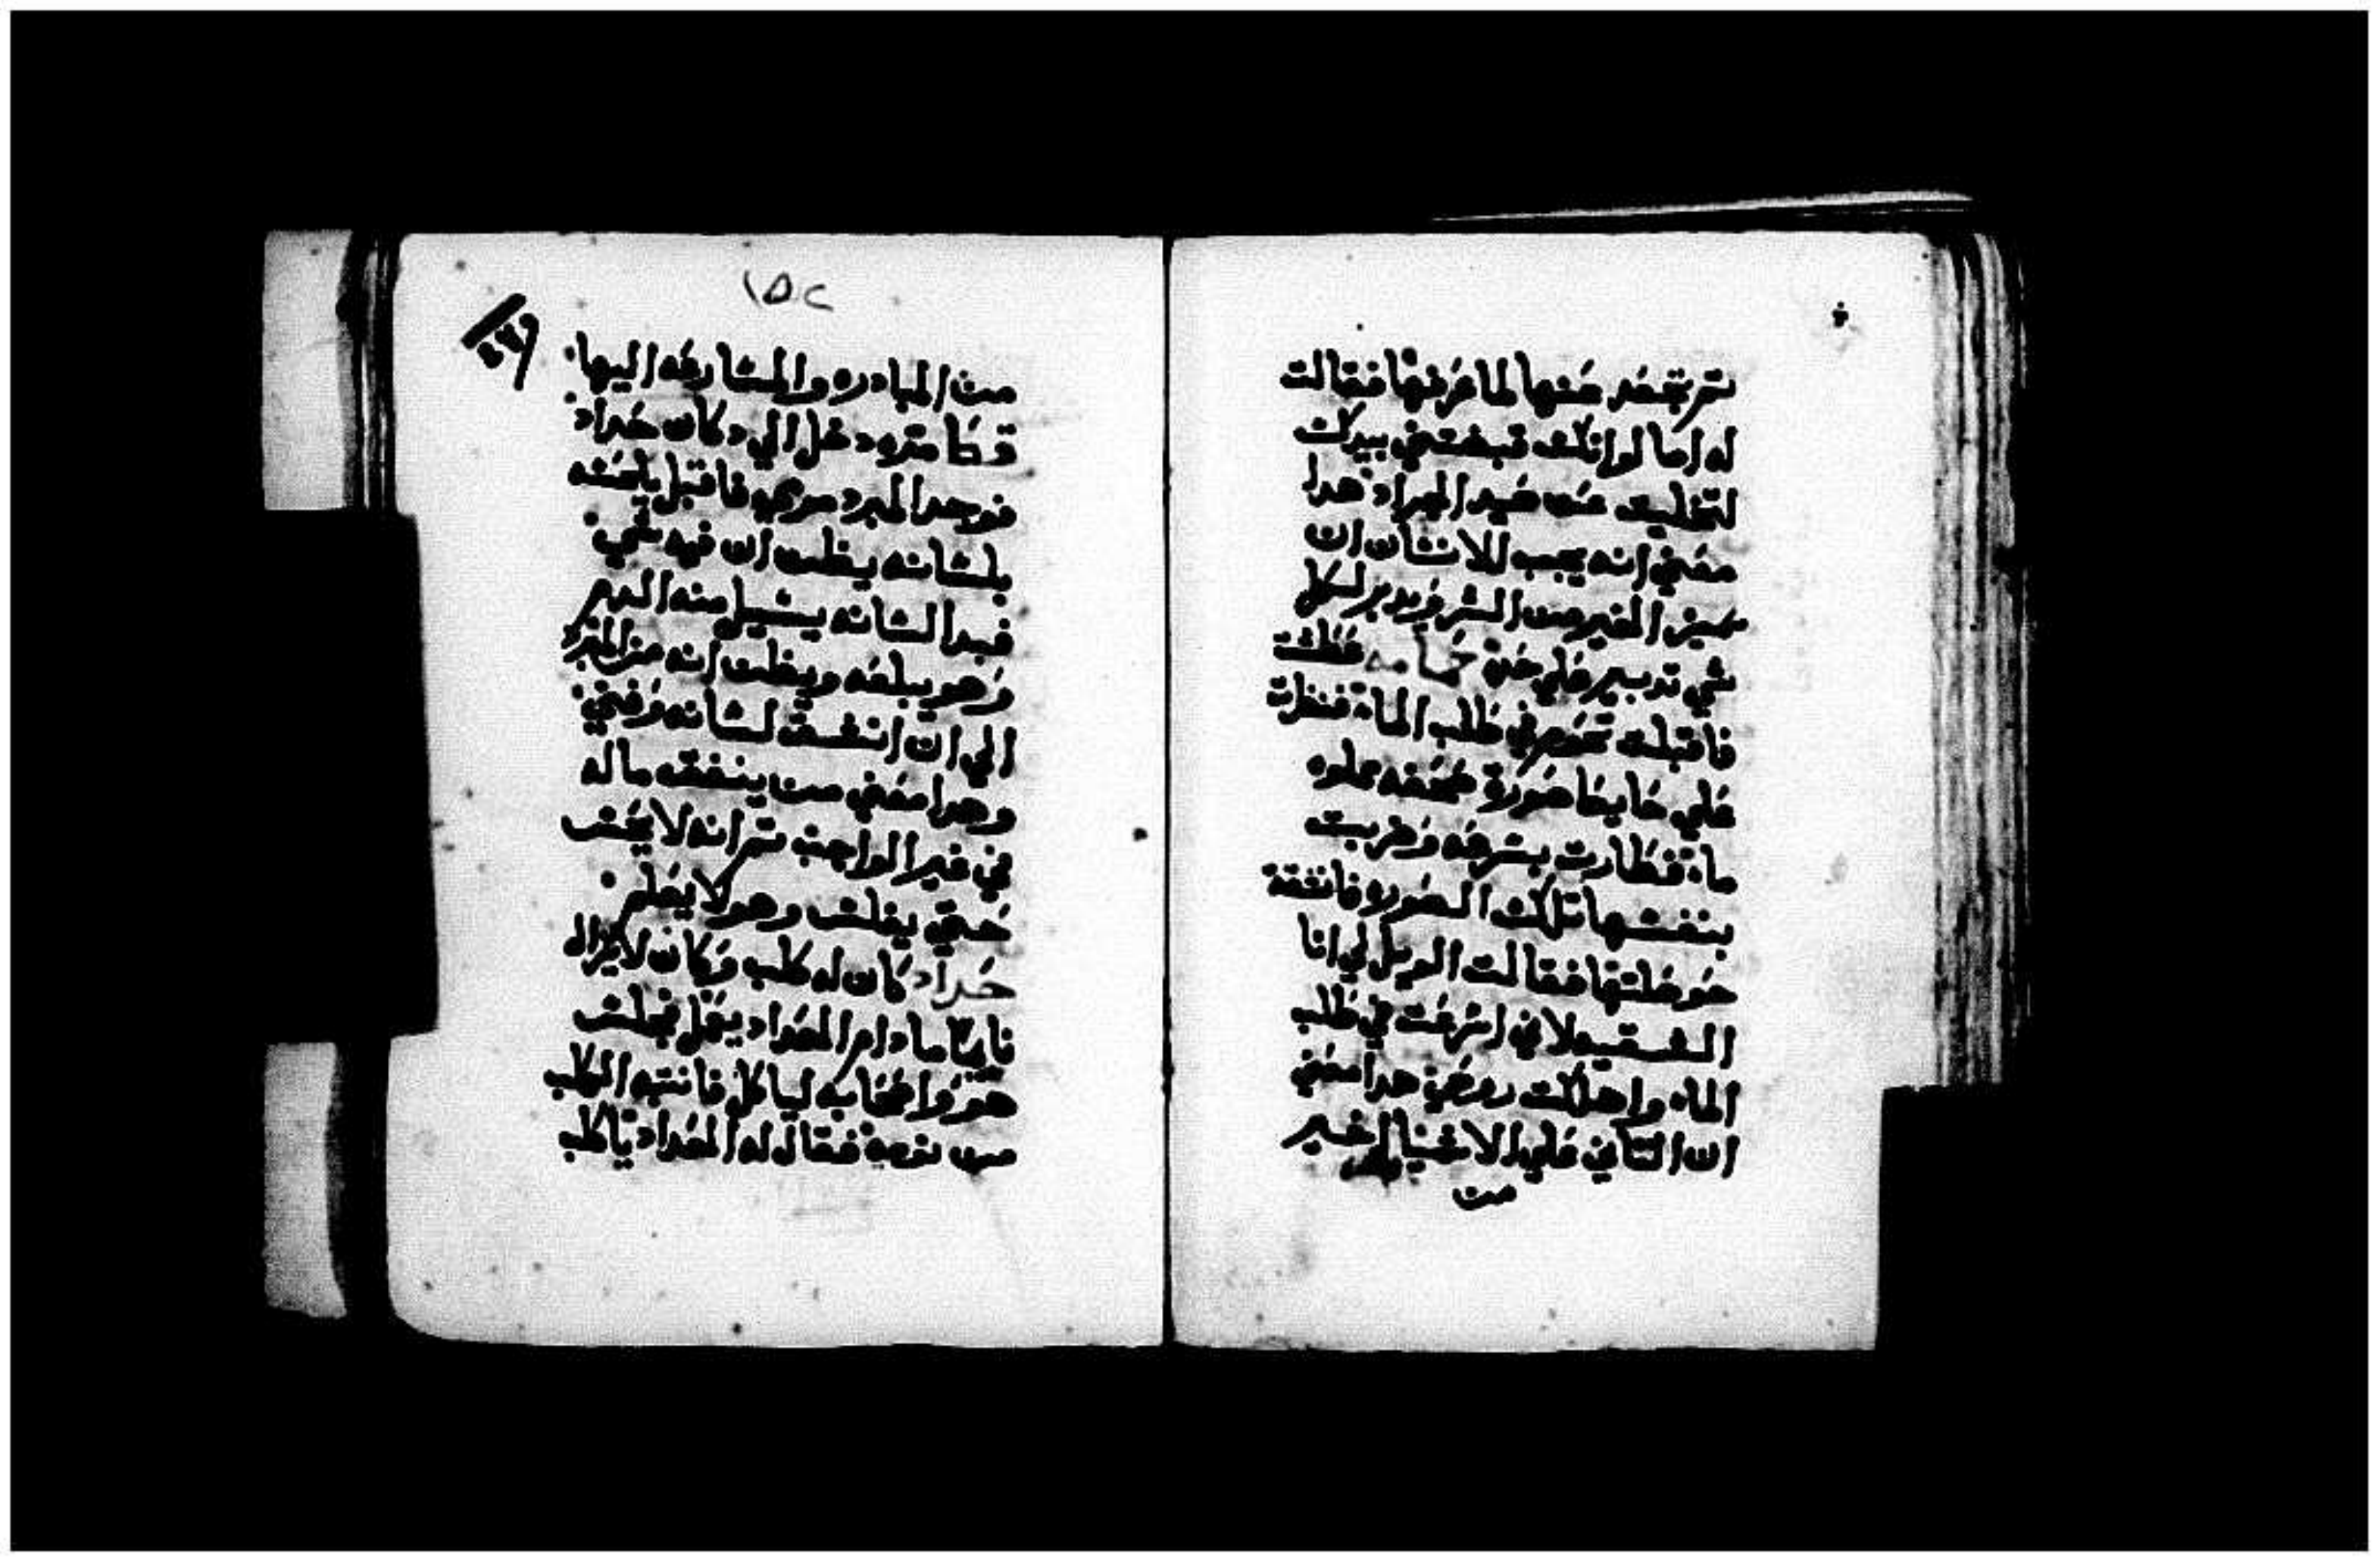 ثم تبعد عنها لما عرفها فقالت
له اما لو انك قبضتني بيدك
لتخليت عن صيد الجراد هدا
معني انه يجب للانسان ان
يميز الخير من الشر ويدبر لكل
شي تدبير علي حدة حمامه عطشت
فاقبلت تحوم في طلب الماء فنظرت
علي حايط صورة صحفه مملوه
ماء فطارت بسرعه وضربت
بنفسها تلك الصوره فانشقة
حوصلتها فقالت الويل لي انا
الشقيه لاني اسرعت في طلب
الماء واهلكت روحي هدا معني
ان التاني علي الاشيا اخير
من
١٥٢
من المبادره والمسارعه اليها
قط مره دخل الي دكان حداد
فوجد المبرد مرمي فاقبل يلحسه
بلسانه يظن ان فيه شي
فبدا لسانه يسيل منه الدم
وهو يبلعه ويظن انه من المبرد
الي ان انشق لسانه وفني
وهدا معني من ينفق ماله
في غير الواجب ثم انه لا يحس
حتي يفلس وهو لا يعلم
حداد كان له كلب وكان لا يزال
نايما ما دام الحداد يعمل فجلس
هو واصحابه لياكل فانتبه الكلب
من نومه فقال له الحداد يا كلب